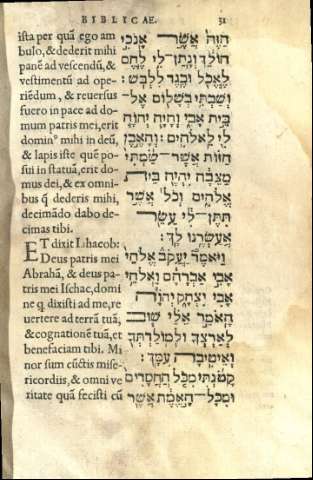 BIBLICAE. 31
ista per quā ego am
bulo, & dederit mihi
panē ad vescendū, &
vestimentū ad ope-
riēdum, & reversus
fuero in pace ad do
mum patris mei, erit
dominꝰ mihi in deū,
& lapis iste quē po-
sui in statuā, erit do
mus dei, & ex omni-
bus q̄ dederis mihi,
decimādo dabo de-
cimas tibi.
ET dixit Iahacob:
Deus patris mei
Abrahā, & deus pa-
tris mei Ischac, domi
ne q dixisti ad me, re
uertere ad terrā tuā,
& cognationē tuā, et
benefaciam tibi. Mi
nor sum cūctis mise-
ricordiis, & omni ve
ritate quā fecisti cū
הַזֶּה אֲשֶׁר אָנֹכִי
הוֹלֵךְ וְנָתַן־לִי לֶחֶם
לֶאֱכֹל וּבֶגֶד לִלְבֹּשׁ:
וְשַׁבְתִּי בְשָׁלוֹם אֶל־
בֵּית אָבִי וְהָיָה יְהוָה
לִי לֵאלֹהִים: וְהָאֶבֶן
הַזֹּאת אֲשֶׁר־שַׂמְתִּי
מַצֵּבָה יִהְיֶה בֵּית
אֱלֹהִים וְכֹל אֲשֶׁר
תִּתֶּן־לִי עַשֵּׂר
אֲעַשְּׂרֶנּוּ לָךְ:
וַיֹּאמֶר יַעֲקֹב אֱלֹהֵי
אָבִי אַבְרָהָם וֵאלֹהֵי
אָבִי יִצְחָק יְהוָה
הָאֹמֵר אֵלַי שׁוּב
לְאַרְצְךָ וּלְמוֹלַדְתְּךָ
וְאֵיטִיבָה עִמָּךְ:
קָטֹנְתִּי מִכֹּל הַחֲסָדִים
וּמִכָּל־הָאֱמֶת אֲשֶׁר